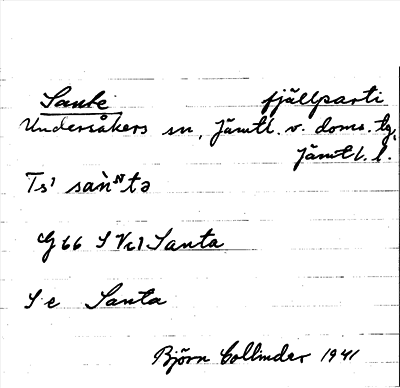 Sante fjällparti
Undersåkers sn, Jämtl. v. doms. tg,
Jämtl. l.
Ts¹ sàᴺtə
G 66 S V 1 Santa
Se Santa
Björn Collinder 1941